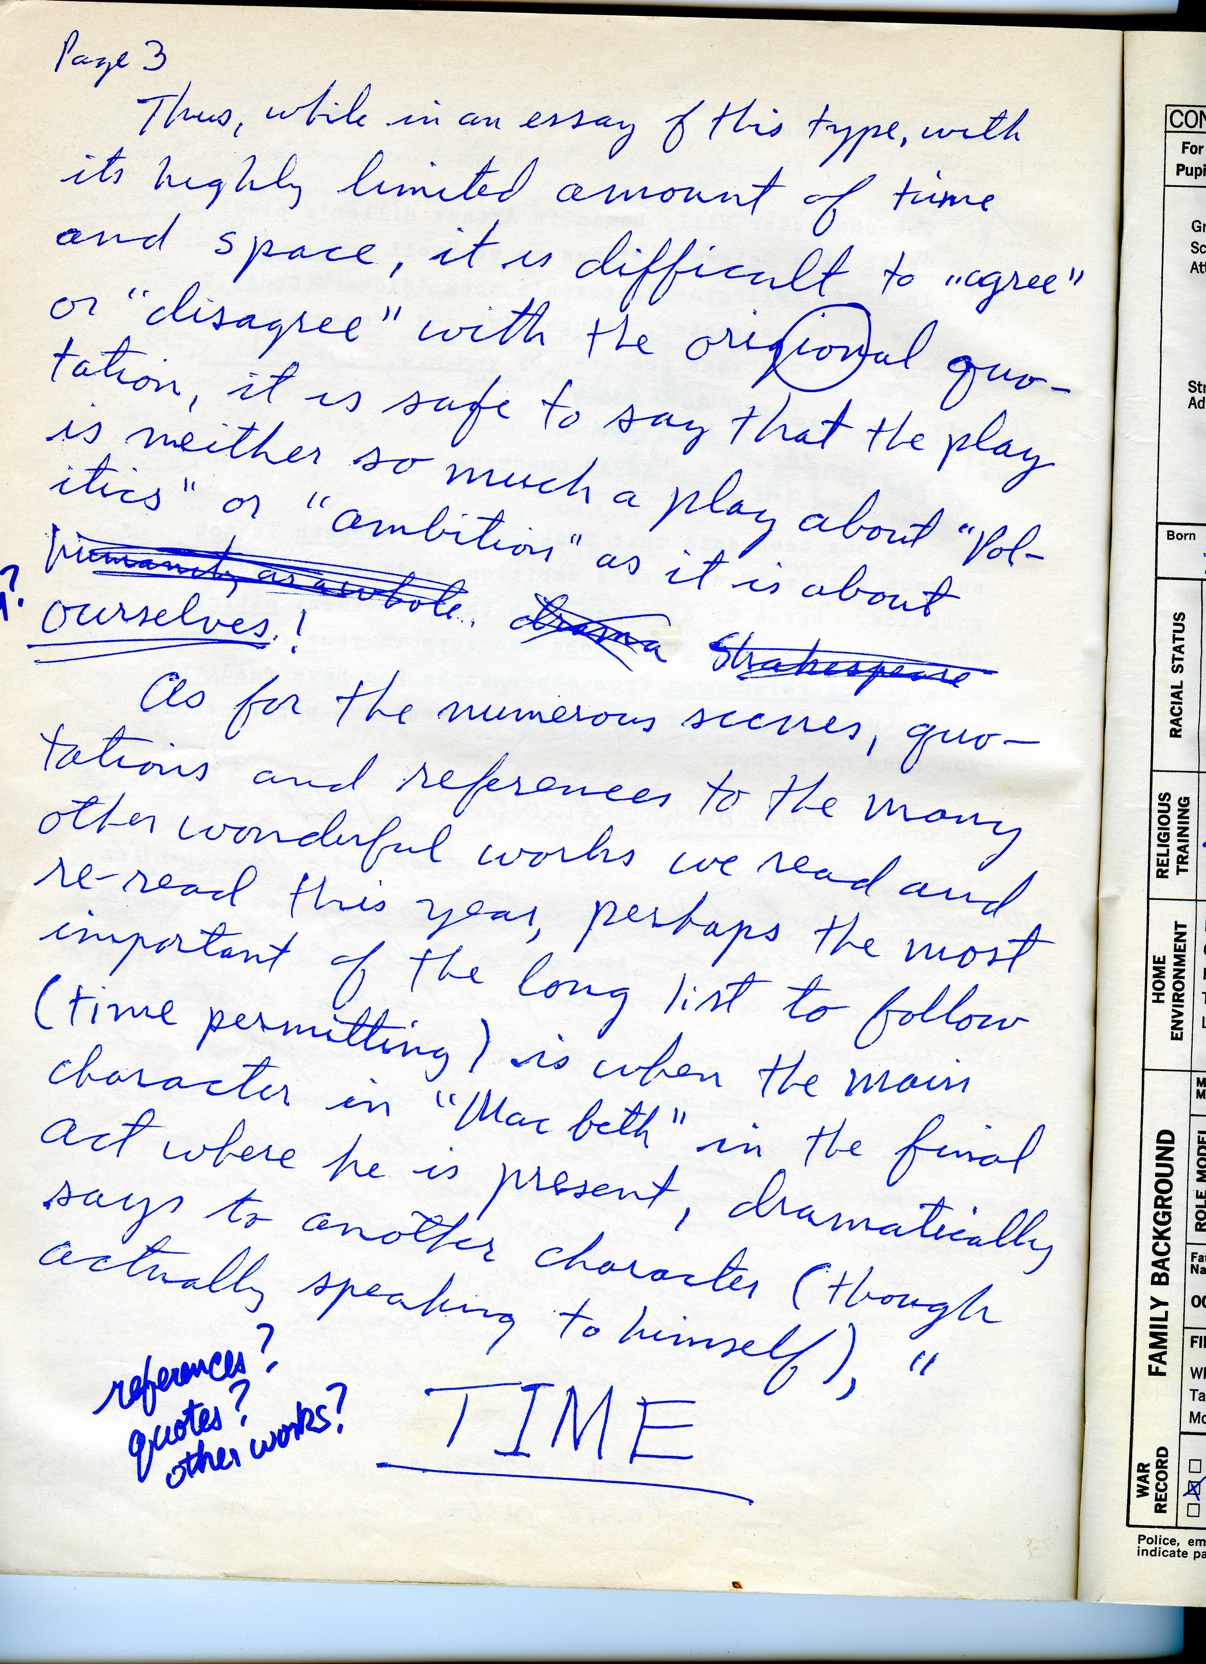 Page 3
Thus, while in an essay of this type, with
its highly limited amount of time
and space, it is difficult to "agree"
or "disagree" with the origional quo-
tation, it is safe to say that the play
is neither so much a play about "Pol-
itics" or "ambition" as it is about
humanity as a whole. drama Shakespeare
ourselves.!
?
As for the numerous scenes, quo-
tations and references to the many
other wonderful works we read and
re-read this year, perhaps the most
important of the long list to follow
(time permitting) is when the main
character in "Mac beth" in the final
act where he is present, dramatically
says to another character (though
actually speaking to himself), "
TIME
references?
quotes?
other works?
CON
For
Pupi
Gr
Sc
Att
Str
Ad
Born
RACIAL STATUS
RELIGIOUS
TRAINING
HOME
ENVIRONMENT
FAMILY BACKGROUND
ROLE MODEL
M
M
Fat
Na
OC
FIE
Wh
Ta
Mo
WAR
RECORD
Police, em
indicate pa